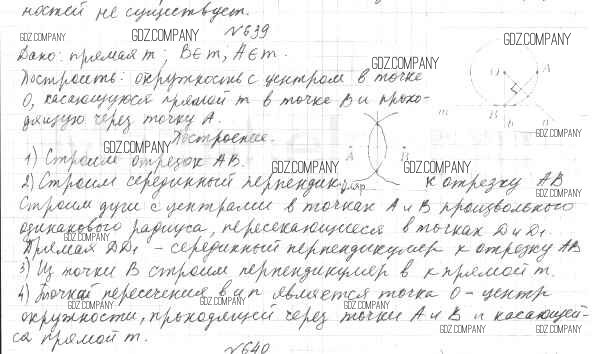 ностей не существует.
№639
GDZ.COMPANY GDZ.COMPANY GDZ.COMPANY
Дано: прямая m; B∈m; A∉m.
GDZ.COMPANY
Построить: окружность с центром в точке
O, касающуюся прямой m в точке B и прохо-
дящую через точку A.
O A
m B n
GDZ.COMPANY
Построение.
GDZ.COMPANY
1) Строим отрезок AB.
A B
GDZ.COMPANY GDZ.COMPANY
2) Строим серединный перпендикуляр к отрезку AB
GDZ.COMPANY
Строим дуги с центрами в точках A и B произвольного
одинакового радиуса, пересекающиеся в точках D и D₁.
GDZ.COMPANY
Прямая DD₁ - серединный перпендикуляр к отрезку AB
3) Из точки B строим перпендикуляр в к прямой m.
GDZ.COMPANY
4) Точкой пересечения в и n является точка O - центр
GDZ.COMPANY GDZ.COMPANY
окружности, проходящей через точки A и B и касающей-
GDZ.COMPANY GDZ.COMPANY GDZ.COMPANY
ся прямой m.
№640